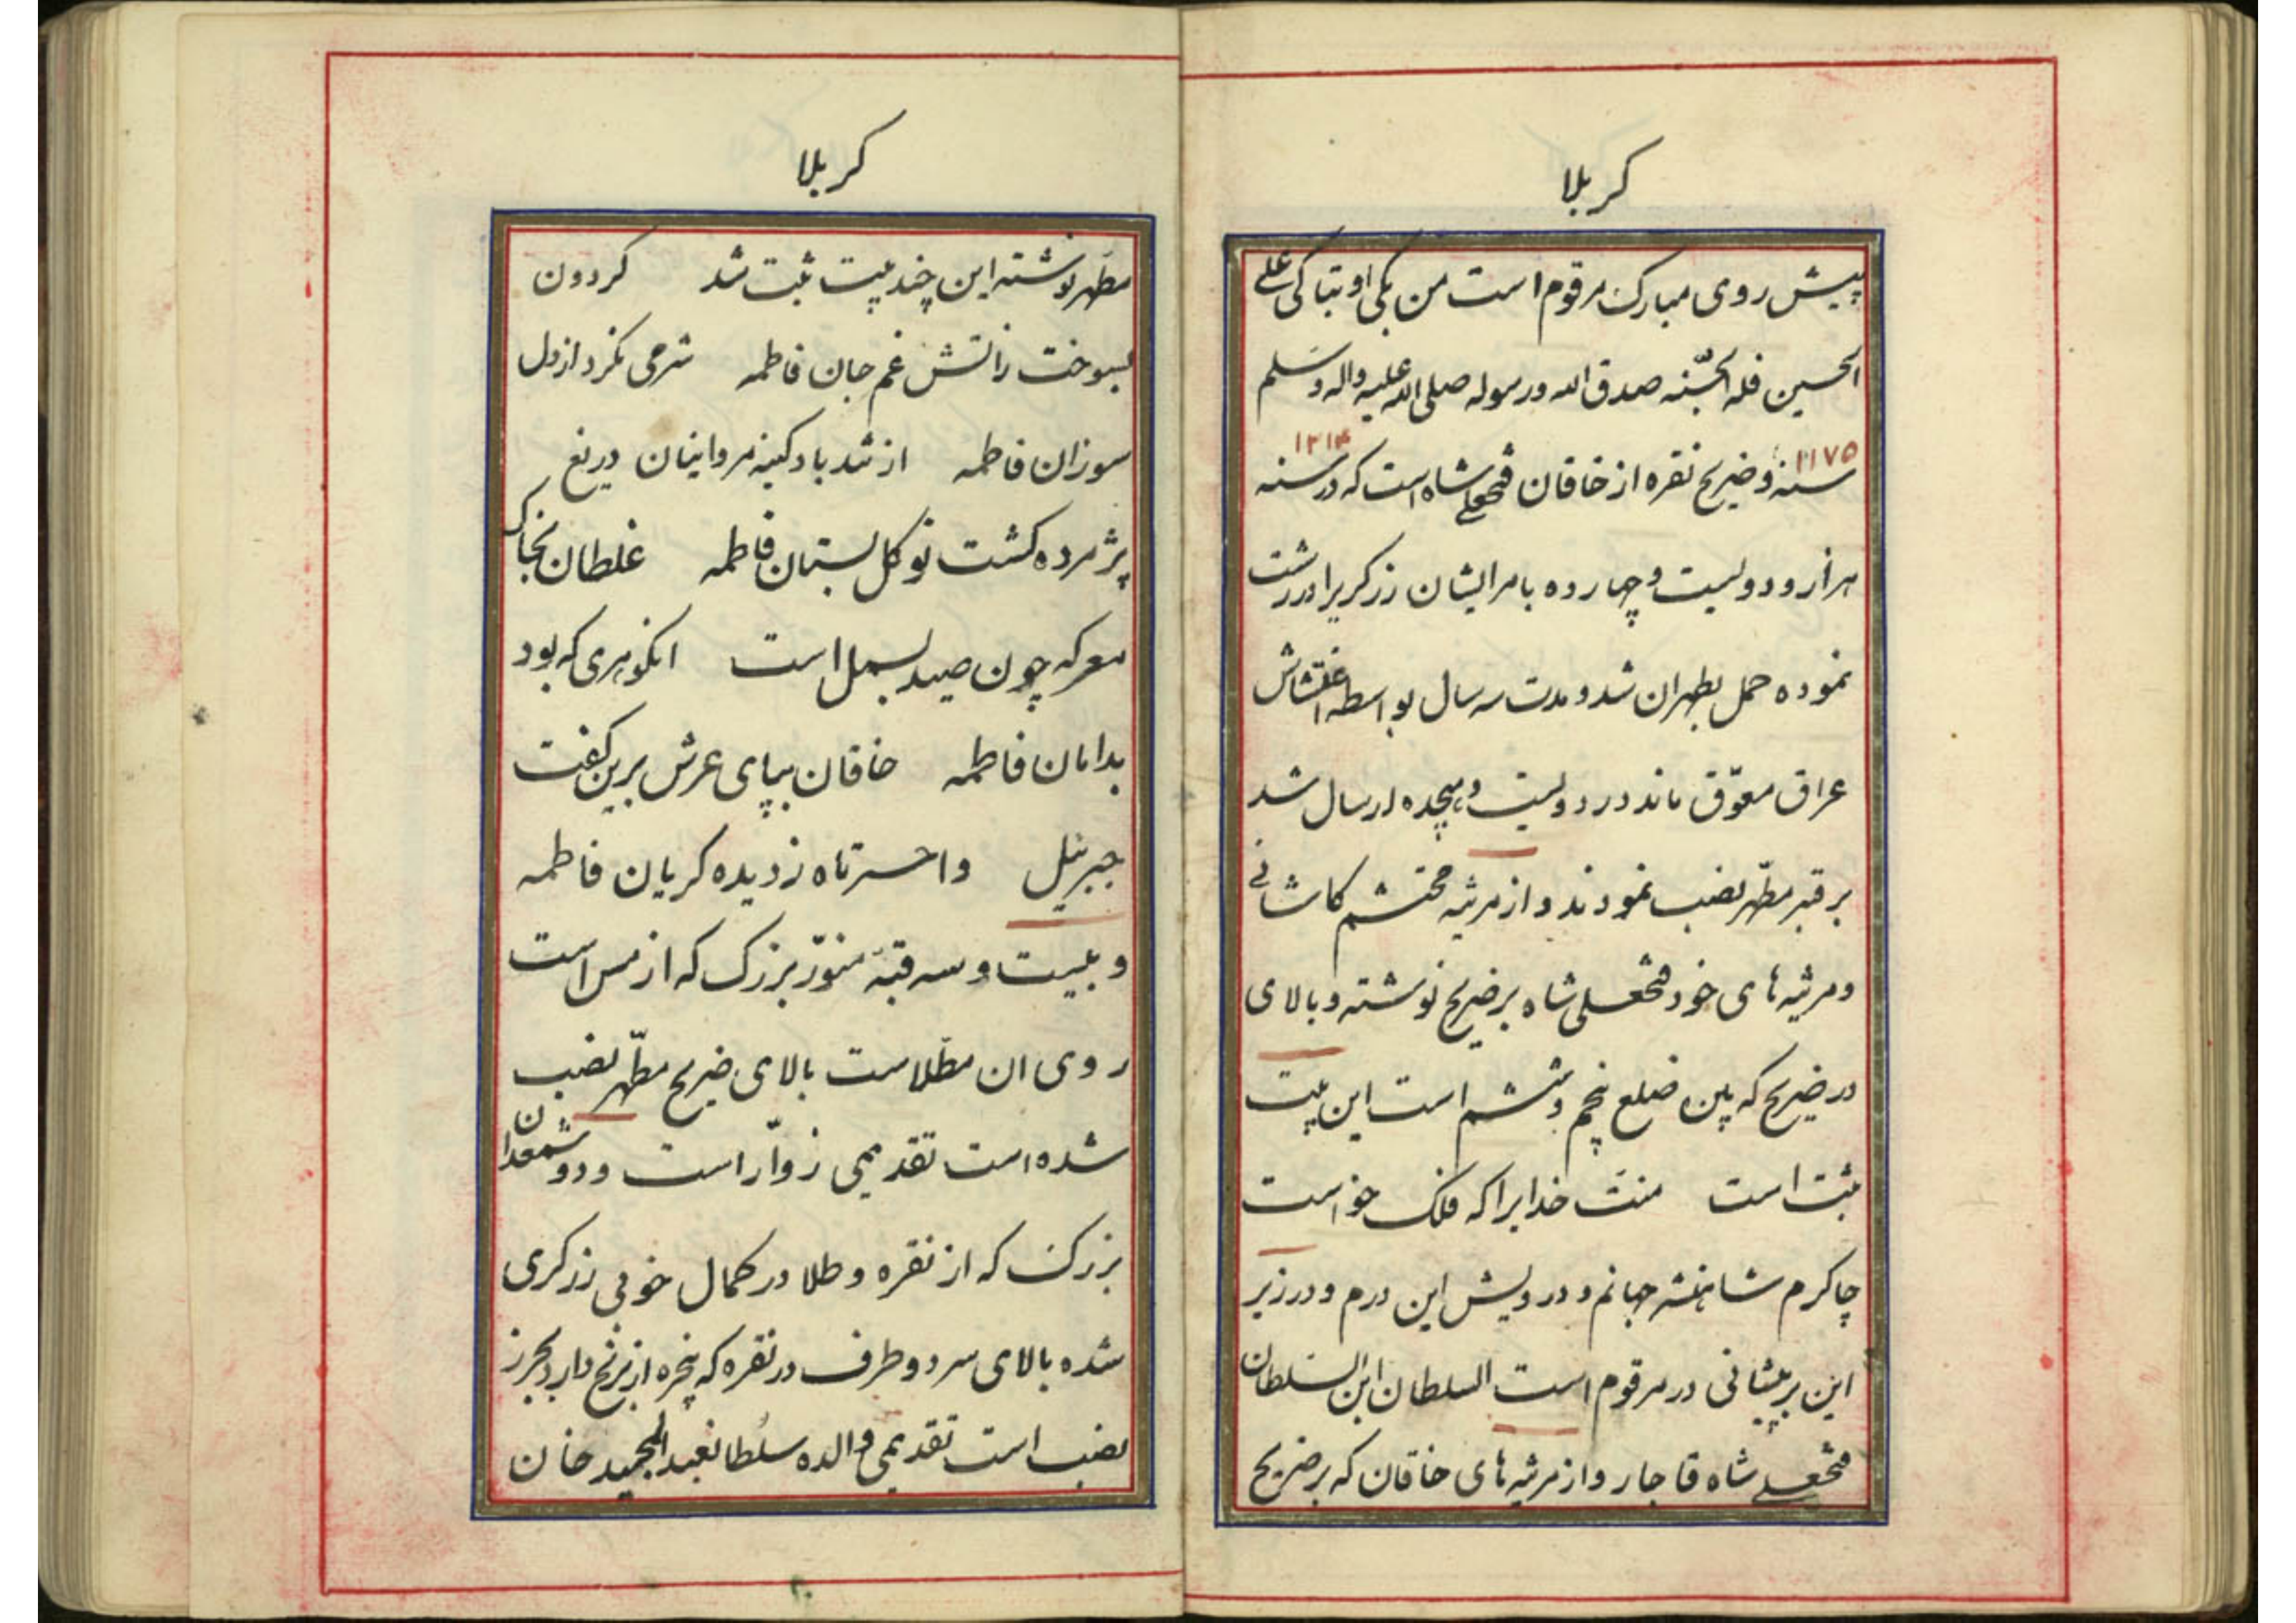 کربلا
پیش روی مبارک مرقوم است من بکی او تباکی علی
الحسین فله الجنّه صدق الله ورسوله صلی الله علیه واله وسلم
۱۱۷۵ ۱۲۱۴
سنه و ضریح نقره از خاقان فتحعلی شاه است که در سنه
هزار و دویست و چهارده بامر ایشان زرگریرا در رشت
نموده حمل بطهران شد و مدت سه سال بواسطه اغتشاش
عراق معوّق ماند در دویست و هیجده ارسال شد
بر قبر مطّهر نصب نمودند و از مرثیه محتشم کاشانی
و مرثیه های خود فتحعلی شاه بر ضریح نوشته و بالای
در ضریح که بین ضلع پنجم و ششم است این بیت
ثبت است منت خدایرا که فلک خواست
چاکرم شاهنشه جهانم و درویش این درم و در زیر
این بر پیشانی در مرقوم است السلطان ابن السلطان
فتحعلی شاه قاجار و از مرثیه های خاقان که بر ضریح
کربلا
مطهر نوشته این چند بیت ثبت شد کردون
بسوخت زاتش غم جان فاطمه شرمی نکرد از دل
سوزان فاطمه از تند باد کینه مروانیان دریغ
پژمرده کشت نو کل بستان فاطمه غلطان بخاک
معرکه چون صید بسمل است انکوهری که بود
بدامان فاطمه خاقان بپای عرش برین کفت
جبرئیل واحسرتاه ز دیده کریان فاطمه
و بیست و سه قبّه منوّر بزرک که از مس است
روی ان مطلاست بالای ضریح مطّهر نصب
شده است تقدیمی زوّار است و دو شمعدان
بزرک که از نقره و طلا در کمال خوبی زرکری
شده بالای سر دو طرف در نقره که پنجره از برنج دارد
نصب است تقدیمی والده سلطانعبدالمجید خان